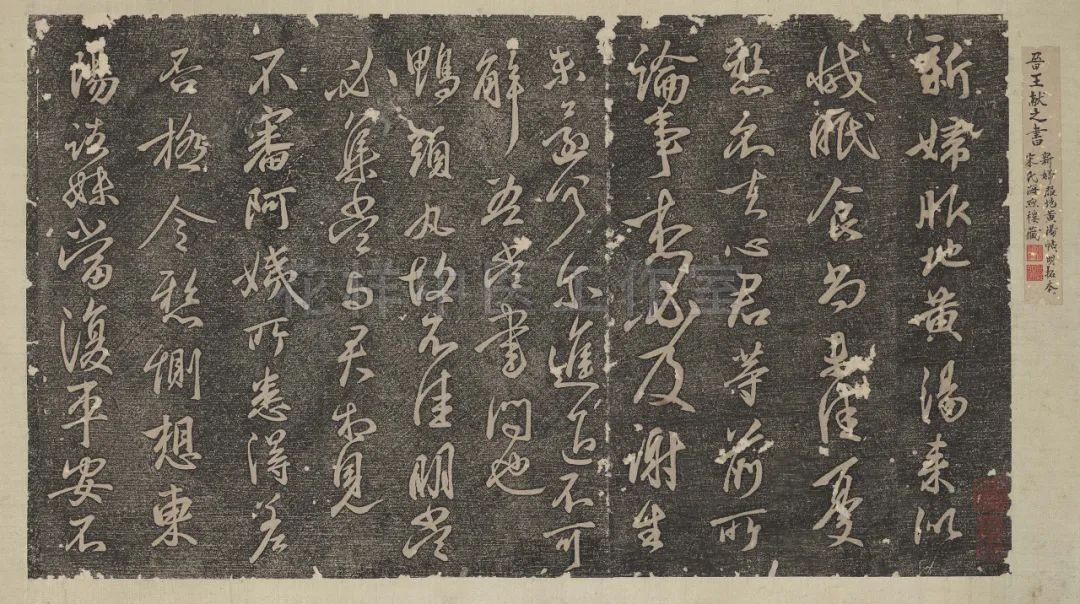 新婦服地黃湯来似
減眠食尚未佳憂
懸不去心君等前所
論事想必及謝生
未還何尔進退不可
解吾當書問也
鴨頭丸故不佳明當
必集當与君相見
不審阿姨所患得差
否極令懸惻想東
陽諸妹當復平安不
晋王献之書
新婦服地黃湯帖明拓本
宋氏海樓藏
中医工作室